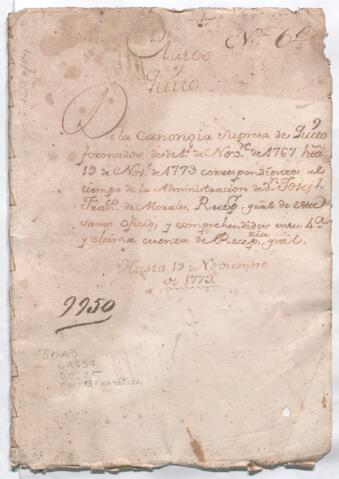 Nº 64
Autos
Quito
De la Canongia Supresa de Quito
formados desde 1º de Nov.re de 1767 hta
19 de Nov.e de 1773 correspondientes al
tiempo de la Administracion de Dn Joseph
Franco de Morales, Recepr gral de este
Santo Oficio, y comprehendidos en su 4ª
y ultima cuenta de Recepría gral.
Hasta 19 de Noviembre
de 1773.
9950